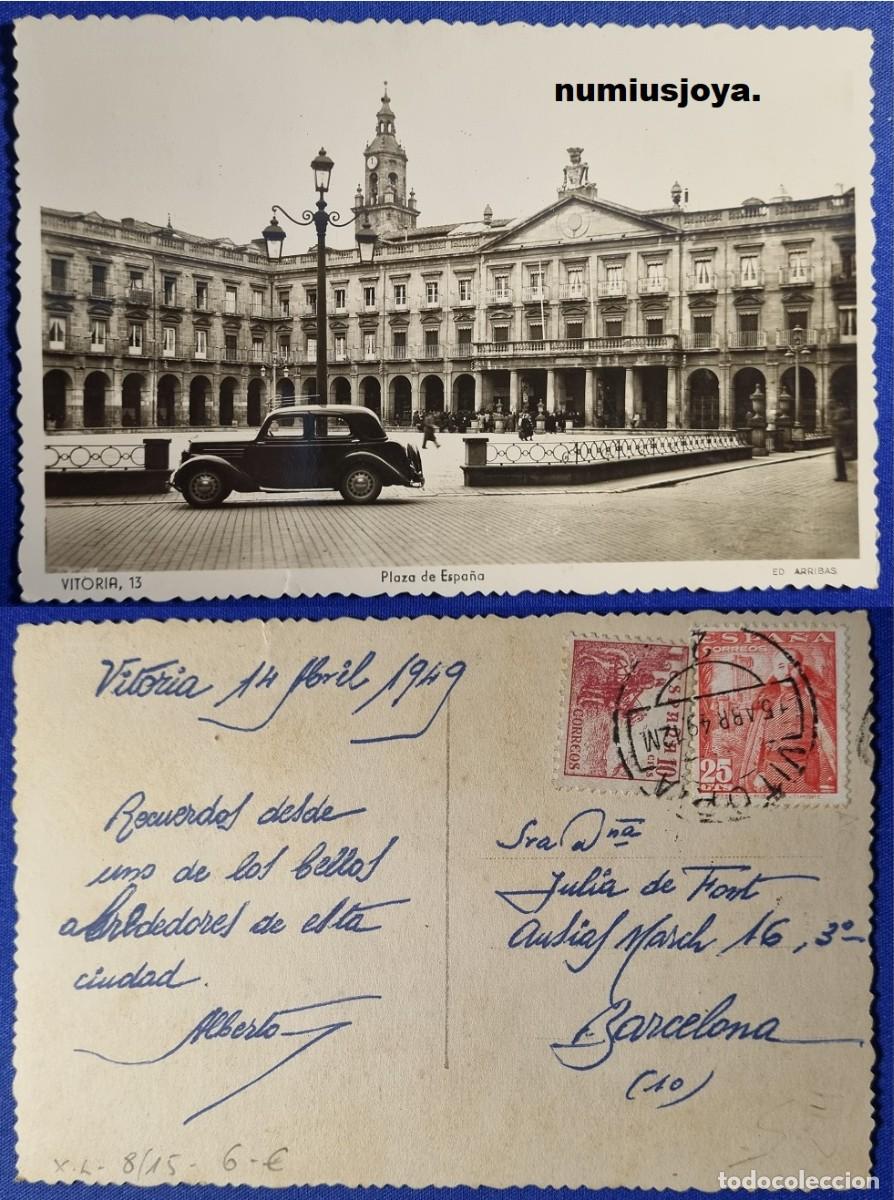 numiusjoya.
VITORIA, 13
Plaza de España
ED. ARRIBAS
Vitoria 14 Abril 1949
Recuerdos desde
uno de los bellos
alrededores de esta
ciudad.
Alberto
ESPAÑA
CORREOS
10
CTS
CORREOS
ESPAÑA
25
CTS
15 ABR 49 12M
VITORIA
Sra Dña
Julia de Font
Ausias March 16, 3º
Barcelona
(10)
X.L- 8/15- 6-€
todocoleccion